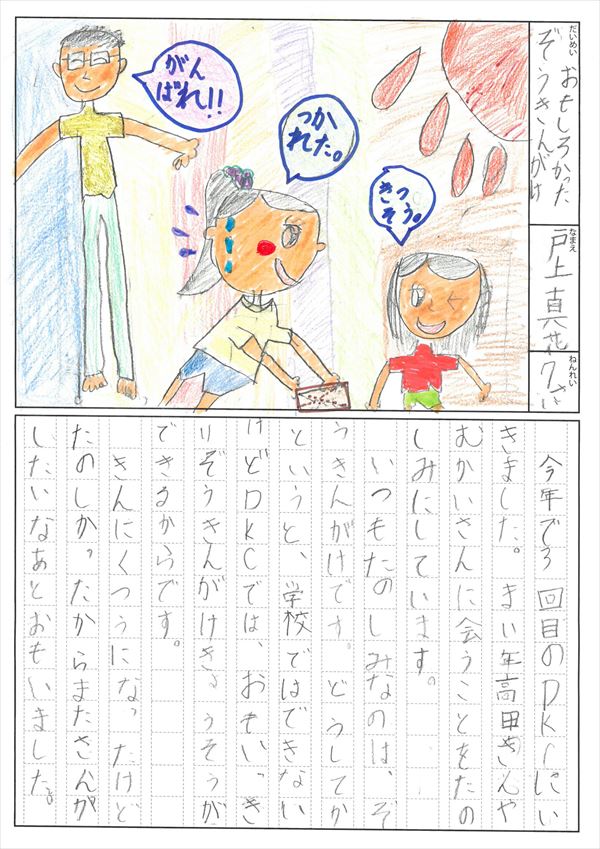 だいめい
おもしろかった
ぞうきんがけ
なまえ
戸上真花
ねんれい
7さい
きつ
そう。
つか
れた。
がん
ばれ!!
今年で3回目のDKCにい
きました。まい年高田さんや
むかいさんに会うことをたの
しみにしています。
いつもたのしみなのは、ぞ
うきんがけです。どうしてか
というと、学校ではできない
けどDKCでは、おもいっき
りぞうきんがけきょうそうが
できるからです。
きんにくつうになったけど
たのしかったからまたさんか
したいなあとおもいました。